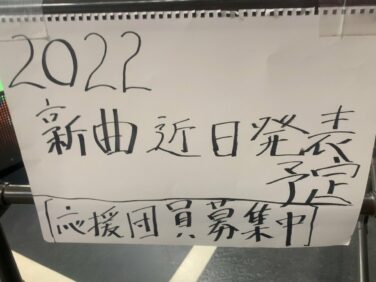 2022
新曲近日発表
予定
[応援団員募集中]